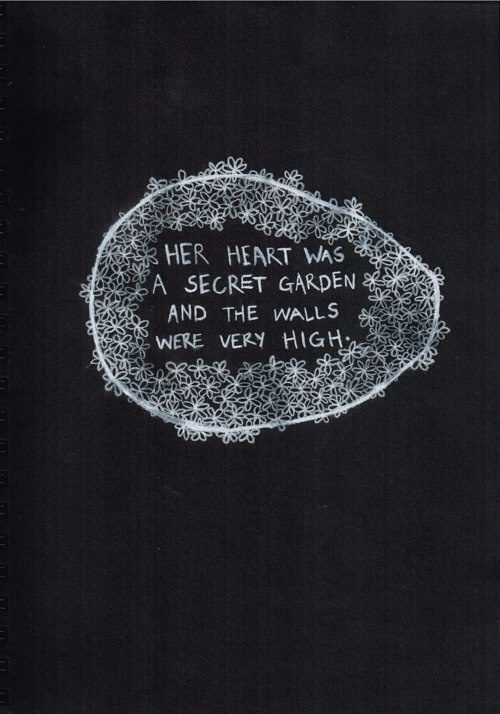 HER HEART WAS
A SECRET GARDEN
AND THE WALLS
WERE VERY HIGH.